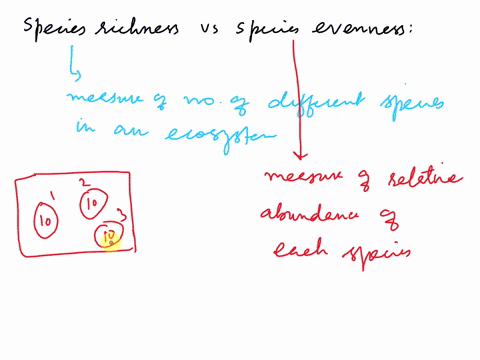 Species richness vs species evenness:
measure of no. of different species
in an ecosystem
measure of relative
abundance of
each species
1 2 3
10 10 10